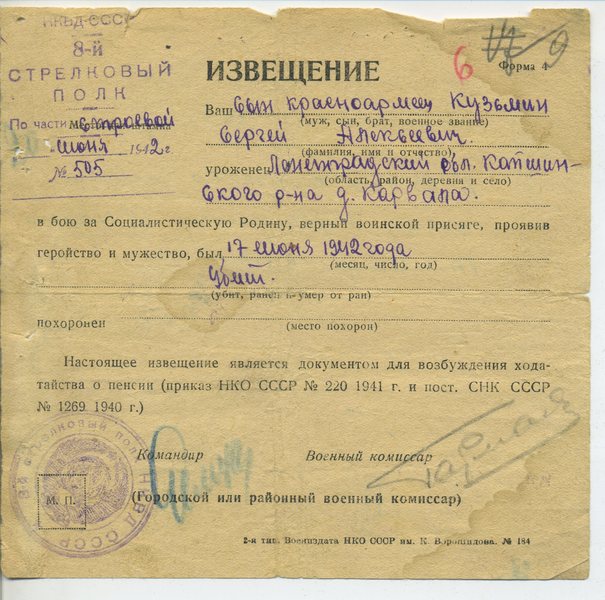 НКВД-СССР
8-й
СТРЕЛКОВЫЙ
ПОЛК
По части строевой
июня 1942 г.
№ 505
6
9
Форма 4
ИЗВЕЩЕНИЕ
Ваш сын красноармеец Кузьмин
(муж, сын, брат, военное звание)
Сергей Алексеевич
(фамилия, имя и отчество)
уроженец Ленинградский обл. Капшин-
(область, район, деревня и село)
ского р-на д. Карвала.
в бою за Социалистическую Родину, верный воинской присяге, проявив
геройство и мужество, был 17 июня 1942 года
(месяц, число, год)
убит.
(убит, ранен и умер от ран)
похоронен
(место похорон)
Настоящее извещение является документом для возбуждения хода-
тайства о пенсии (приказ НКО СССР № 220 1941 г. и пост. СНК СССР
№ 1269 1940 г.)
Командир Военный комиссар
М. П.
(Городской или районный военный комиссар)
8-й стрелковый полк НКВД СССР
2-я тип. Воениздата НКО СССР им. К. Ворошилова. № 184